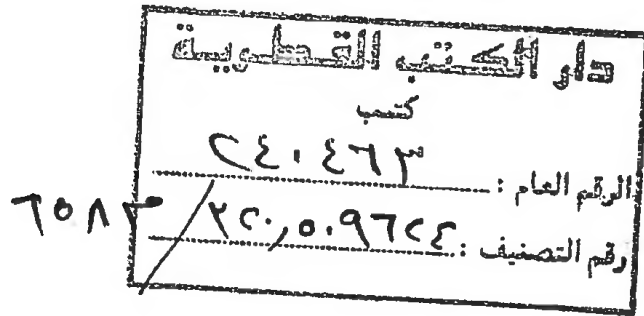 دار الكتب القطرية
كتب
الرقم العام : ٢٤٠٤٦٣
رقم التصنيف : ٣٢٠,٥٠٩٦٢٤
٦٥٨٣